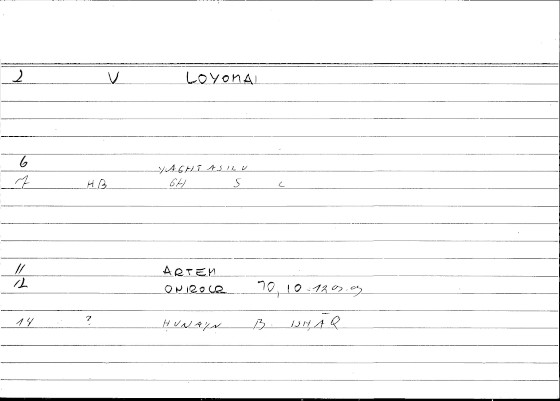 2 V LOYONAI
6 YAGHTASILU
7 HB GH S C
11 ARTEM
12 ONIROCR 70, 10-12
14 ? HUNAYN B ISHĀQ